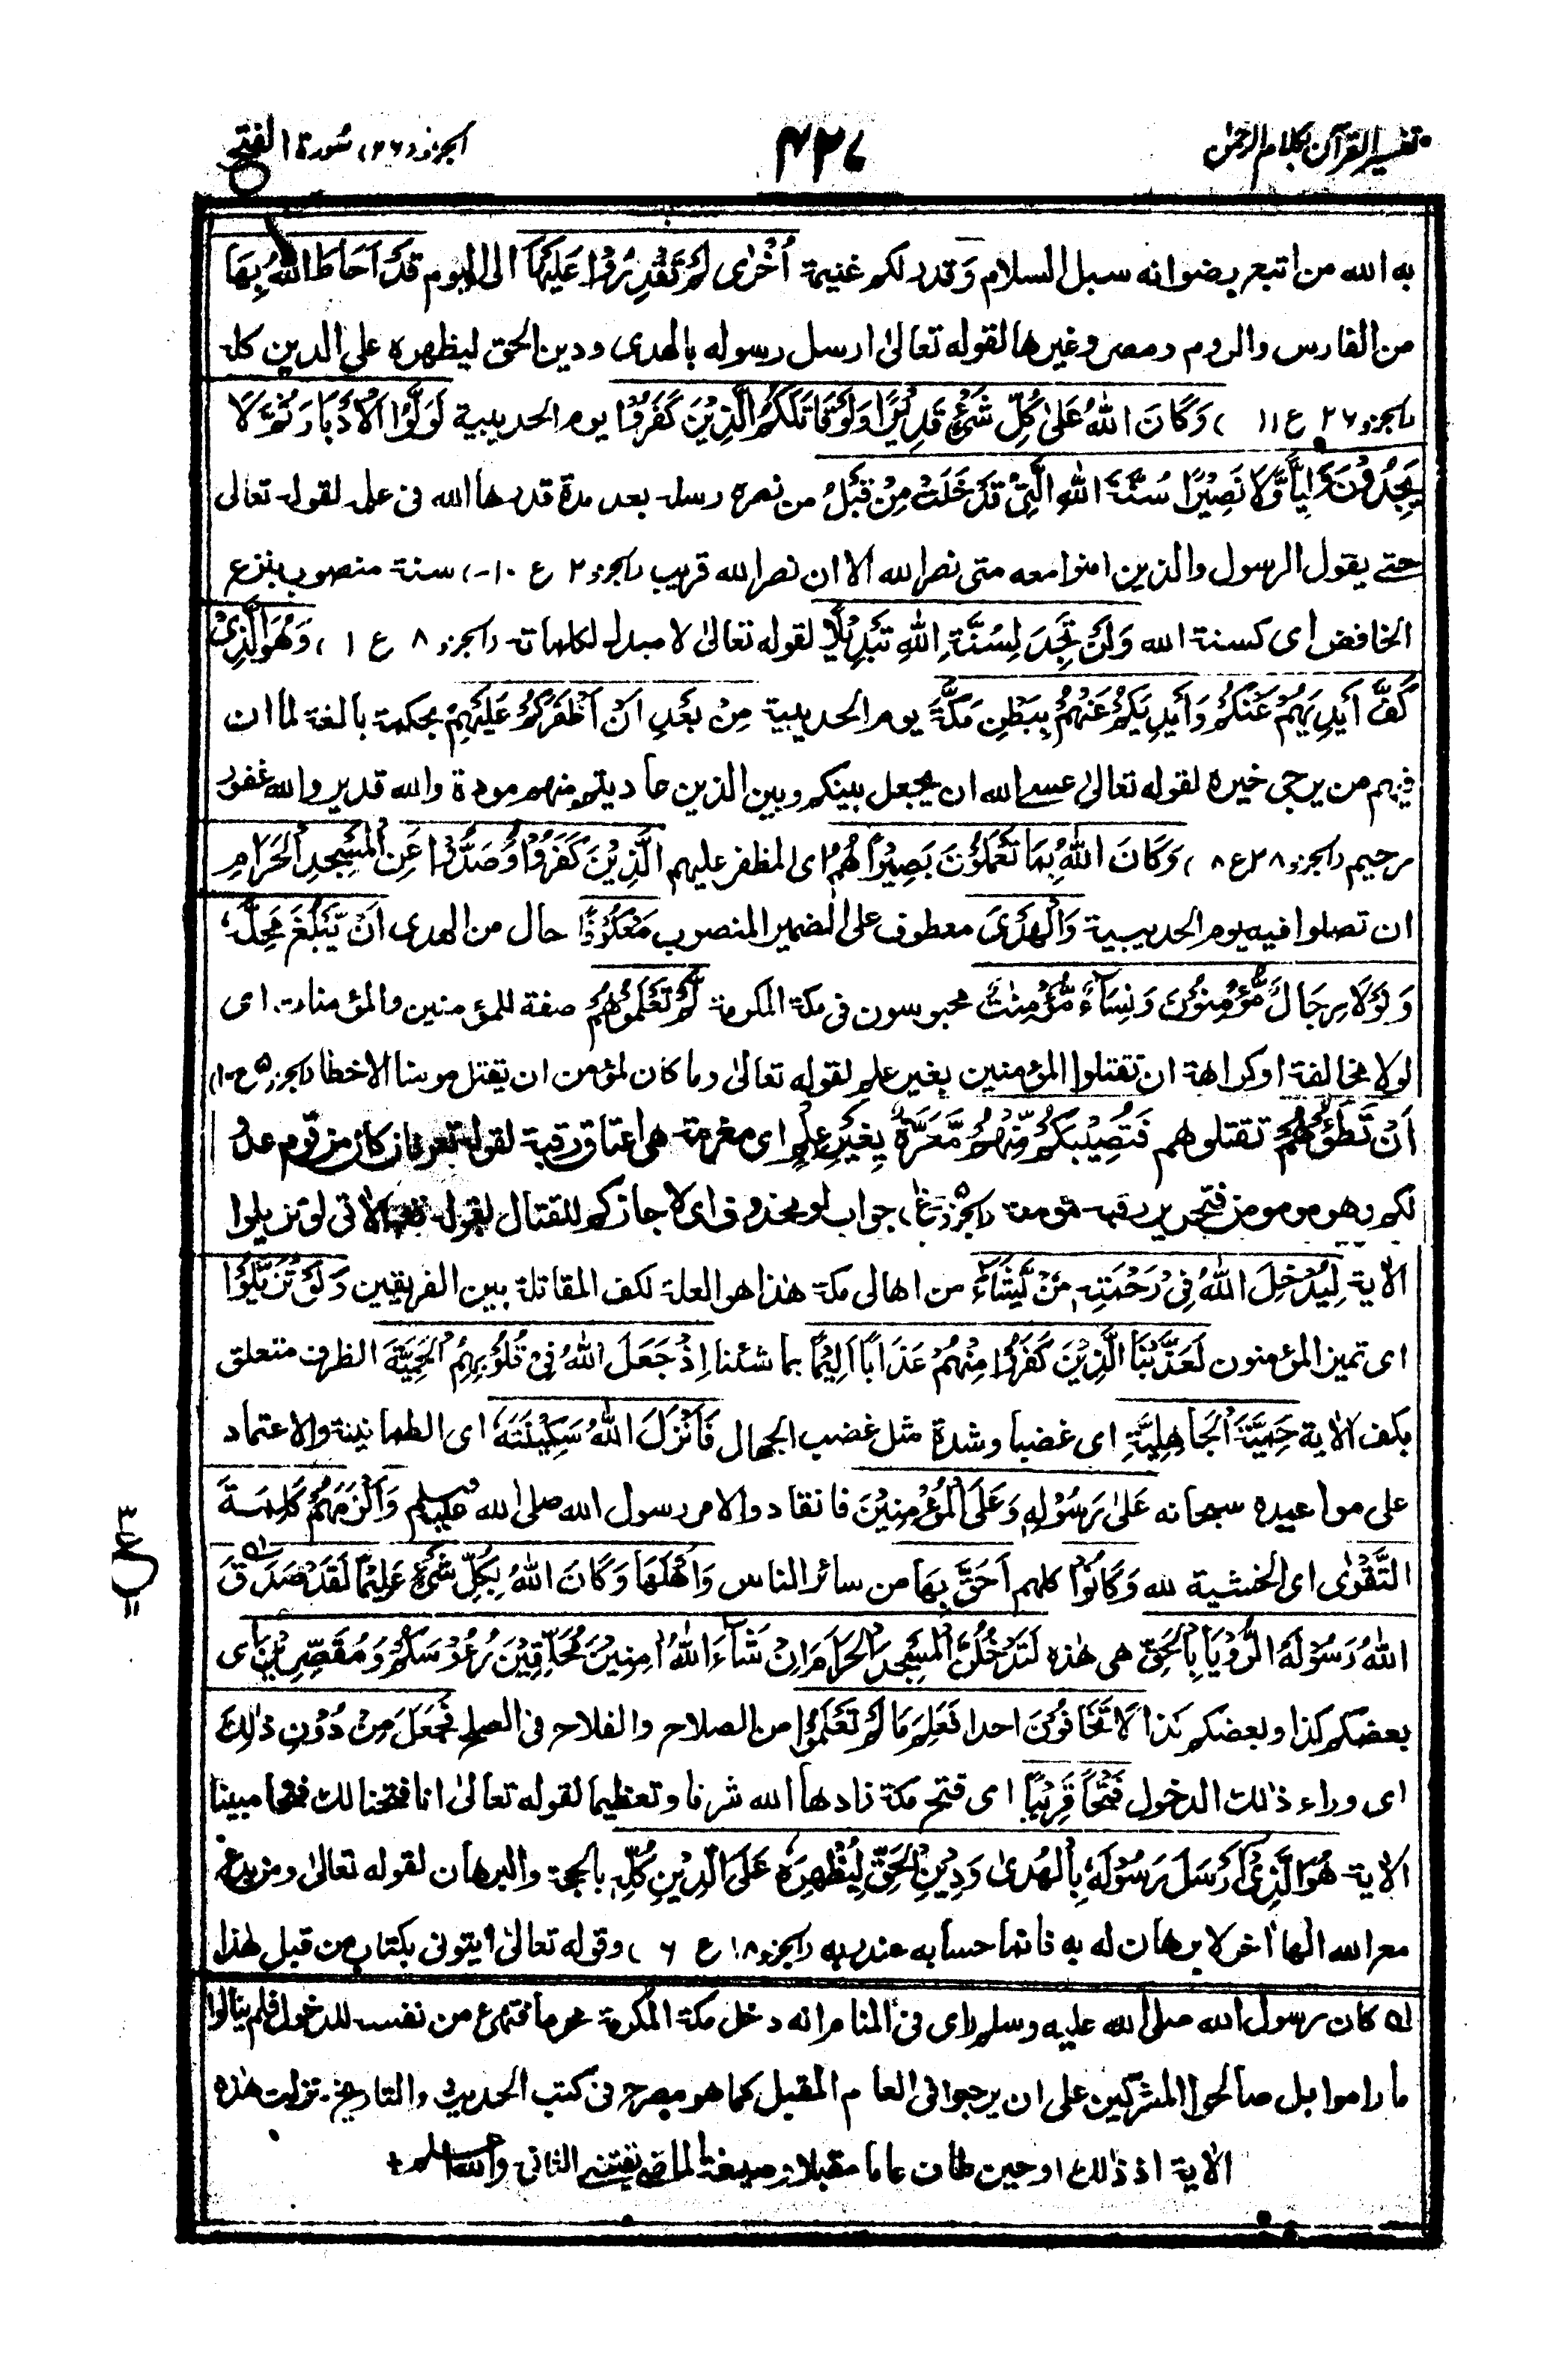 تفسير القرآن بكلام الرحمن
٤٢٧
الجزو(٢٦) سُورة الفتح
به الله من اتبع رضوانه سبل السلام وَقدر لكم غنيمة اُخْرٰى لَمْ تَقْدِرُوْا عَلَيْهَا الى اليوم قَدْ اَحَاطَ اللهُ بِهَا
من الفارس والروم ومصر وغيرها لقوله تعالىٰ ارسل رسوله بالهدى ودين الحق ليظهره على الدين كله
(الجزو ٢٦ ع ١١) وَكَانَ اللهُ عَلىٰ كُلِّ شَىْءٍ قَدِيْرًا وَلَوْ قَاتَلَكُمُ الَّذِيْنَ كَفَرُوْا يوم الحديبية لَوَلَّوُا الْاَدْبَارَ ثُمَّ لَا
يَجِدُوْنَ وَلِيًّا وَّلَا نَصِيْرًا سُنَّةَ اللهِ الَّتِىْ قَدْ خَلَتْ مِنْ قَبْلُ من نصره رسله بعد مدة قدرها الله فى علمه لقوله تعالى
حتى يقول الرسول والذين امنوا معه متى نصر الله الا ان نصر الله قريب (الجزو ٢ ع ١٠) سنة منصوب بنزع
الخافض اى كسنة الله وَلَنْ تَجِدَ لِسُنَّةِ اللهِ تَبْدِيْلًا لقوله تعالىٰ لا مبدل لكلماته (الجزو ٨ ع ١) وَهُوَ الَّذِىْ
كَفَّ اَيْدِيَهُمْ عَنْكُمْ وَاَيْدِيَكُمْ عَنْهُمْ بِبَطْنِ مَكَّةَ يوم الحديبية مِنْ بَعْدِ اَنْ اَظْفَرَكُمْ عَلَيْهِمْ بحكمة بالغة لما ان
فيهم من يرجى خيره لقوله تعالىٰ عسى الله ان يجعل بينكم وبين الذين عاديتم منهم مودة والله قدير والله غفور
رحيم (الجزو ٢٨ ع ٨) وَكَانَ اللهُ بِمَا تَعْمَلُوْنَ بَصِيْرًا هُمُ اى المظفر عليهم الَّذِيْنَ كَفَرُوْا وَصَدُّوْكُمْ عَنِ الْمَسْجِدِ الْحَرَامِ
ان تصلوا فيه يوم الحديبية وَالْهَدْىَ معطوف على الضمير المنصوب مَعْكُوْفًا حال من الهدى اَنْ يَّبْلُغَ مَحِلَّهٗ
وَلَوْلَا رِجَالٌ مُّؤْمِنُوْنَ وَنِسَآءٌ مُّؤْمِنٰتٌ محبوسون فى مكة المكرمة لَّمْ تَعْلَمُوْهُمْ صفة للمؤمنين والمؤمنات اى
لولا مخالفة او كراهة ان تقتلوا المؤمنين بغير علم لقوله تعالىٰ وما كان لمؤمن ان يقتل مومنا الا خطا (الجزو ٥ ع ١٠)
اَنْ تَطَئُوْهُمْ تقتلوهم فَتُصِيْبَكُمْ مِّنْهُمْ مَّعَرَّةٌ بِغَيْرِ عِلْمٍ اى مغرمة هى اعتاق رقبة لقوله تعه فان كان من قوم عدو
لكم وهو مومن فتحرير رقبة مؤمنة جواب لو محذوف اى لاجازكم للقتال لقوله الاتى لو تزيلوا
الاٰية لِيُدْخِلَ اللهُ فِىْ رَحْمَتِهٖ مَنْ يَّشَآءُ من اهالى مكة هذا هو العلة لكف المقاتلة بين الفريقين وَلَوْ تَزَيَّلُوْا
اى تميز المؤمنون لَعَذَّبْنَا الَّذِيْنَ كَفَرُوْا مِنْهُمْ عَذَابًا اَلِيْمًا بما شئنا اِذْ جَعَلَ اللهُ فِىْ قُلُوْبِهِمُ الْحَمِيَّةَ الظرف متعلق
بكف الاٰية حَمِيَّةَ الْجَاهِلِيَّةِ اى غضبا وشدة مثل غضب الجهال فَاَنْزَلَ اللهُ سَكِيْنَتَهٗ اى الطمانينة والاعتماد
على مواعيده سبحانه عَلىٰ رَسُوْلِهٖ وَعَلَى الْمُؤْمِنِيْنَ فانقادوا لامر رسول الله صلى الله عليه وسلم وَاَلْزَمَهُمْ كَلِمَةَ
التَّقْوٰى اى الخشية لله وَكَانُوْا كلهم اَحَقَّ بِهَا من سائر الناس وَاَهْلَهَا وَكَانَ اللهُ بِكُلِّ شَىْءٍ عَلِيْمًا لَقَدْ صَدَقَ
اللهُ رَسُوْلَهُ الرُّؤْيَا بِالْحَقِّ هى هذه لَتَدْخُلُنَّ الْمَسْجِدَ الْحَرَامَ اِنْ شَآءَ اللهُ اٰمِنِيْنَ مُحَلِّقِيْنَ رُءُوْسَكُمْ وَمُقَصِّرِيْنَ اى
بعضكم كذا وبعضكم كذا لَا تَخَافُوْنَ احدا فَعَلِمَ مَا لَمْ تَعْلَمُوْا من الصلاح والفلاح فى الصلح فَجَعَلَ مِنْ دُوْنِ ذٰلِكَ
اى وراء ذٰلك الدخول فَتْحًا قَرِيْبًا اى فتح مكة زادها الله شرفا وتعظيما لقوله تعالىٰ انا فتحنا لك فتحا مبينا
الاٰية هُوَ الَّذِىْ اَرْسَلَ رَسُوْلَهٗ بِالْهُدىٰ وَدِيْنِ الْحَقِّ لِيُظْهِرَهٗ عَلَى الدِّيْنِ كُلِّهٖ بالحجة والبرهان لقوله تعالىٰ ومن يدع
مع الله الها اٰخر لا برهان له به فانما حسابه عند ربه (الجزو ١٨ ع ٦) وقوله تعالىٰ ايتونى بكتاب من قبل هذا
كان رسول الله صلى الله عليه وسلم راى فى المنام انه دخل مكة المكرمة محرما من نفسه للدخول فلم ينالوا
ما راموا بل صالحوا المشركين على ان يرجوا فى العام المقبل كما هو مصرح فى كتب الحديث والتاريخ. نزلت هذه
الاٰية اذ ذٰلك او حين عاما مقبلا صيغة الماضى الثانى والله اعلم